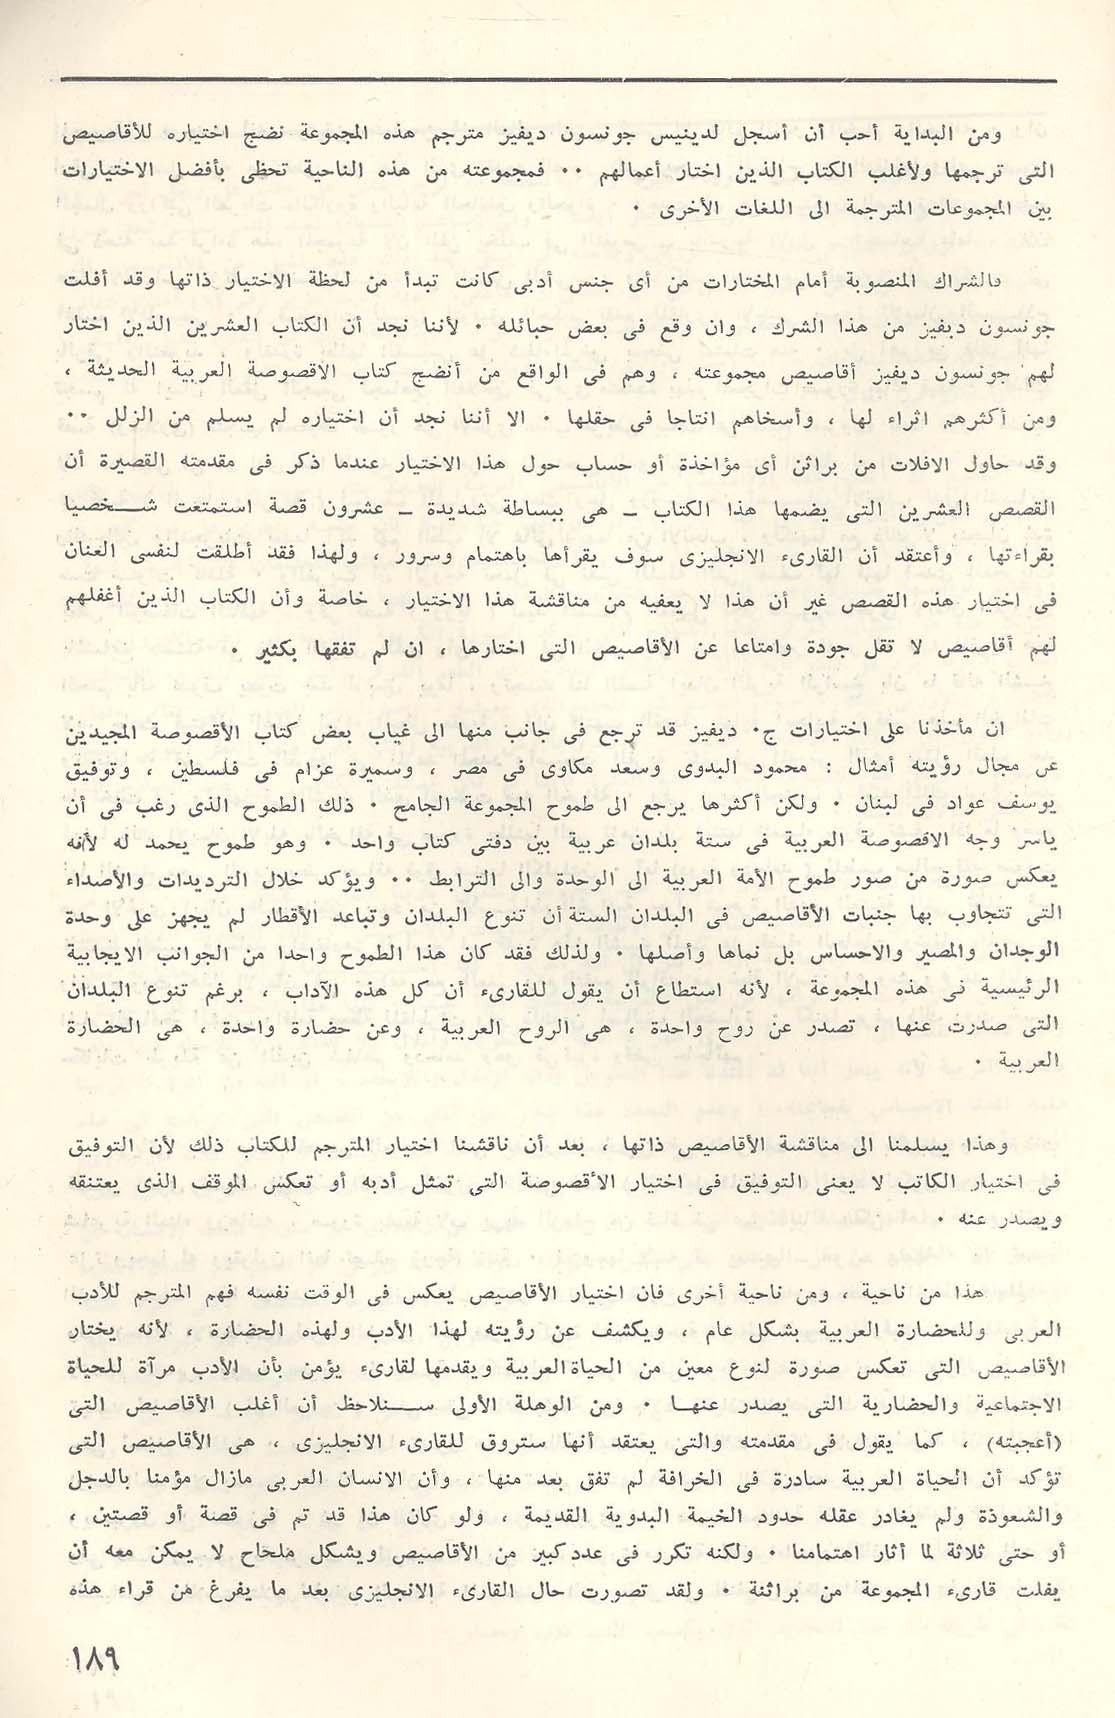 ومن البداية أحب أن أسجل لدينيس جونسون ديفيز مترجم هذه المجموعة نضج اختياره للأقاصيص
التى ترجمها ولأغلب الكتاب الذين اختار أعمالهم ٠٠ فمجموعته من هذه الناحية تحظى بأفضل الاختيارات
بين المجموعات المترجمة الى اللغات الأخرى ٠
فالشراك المنصوبة أمام المختارات من أى جنس أدبى كانت تبدأ من لحظة الاختيار ذاتها وقد أفلت
جونسون ديفيز من هذا الشرك ، وان وقع فى بعض حبائله ٠ لأننا نجد أن الكتاب العشرين الذين اختار
لهم جونسون ديفيز أقاصيص مجموعته ، وهم فى الواقع من أنضج كتاب الاقصوصة العربية الحديثة ،
ومن أكثرهم اثراء لها ، وأسخاهم انتاجا فى حقلها ٠ الا أننا نجد أن اختياره لم يسلم من الزلل ٠٠
وقد حاول الافلات من براثن أى مؤاخذة أو حساب حول هذا الاختيار عندما ذكر فى مقدمته القصيرة أن
القصص العشرين التى يضمها هذا الكتاب ـ هى ببساطة شديدة ـ عشرون قصة استمتعت شـــخصيا
بقراءتها ، وأعتقد أن القارىء الانجليزى سوف يقرأها باهتمام وسرور ، ولهذا فقد أطلقت لنفسى العنان
فى اختيار هذه القصص غير أن هذا لا يعفيه من مناقشة هذا الاختيار ، خاصة وأن الكتاب الذين أغفلهم
لهم أقاصيص لا تقل جودة وامتاعا عن الأقاصيص التى اختارها ، ان لم تفقها بكثير ٠
ان مأخذنا على اختيارات ج٠ ديفيز قد ترجع فى جانب منها الى غياب بعض كتاب الأقصوصة المجيدين
عن مجال رؤيته أمثال : محمود البدوى وسعد مكاوى فى مصر ، وسميرة عزام فى فلسطين ، وتوفيق
يوسف عواد فى لبنان ٠ ولكن أكثرها يرجع الى طموح المجموعة الجامح ٠ ذلك الطموح الذى رغب فى أن
ياسر وجه الاقصوصة العربية فى ستة بلدان عربية بين دفتى كتاب واحد ٠ وهو طموح يحمد له لأنه
يعكس صورة من صور طموح الأمة العربية الى الوحدة والى الترابط ٠٠ ويؤكد خلال الترديدات والأصداء
التى تتجاوب بها جنبات الأقاصيص فى البلدان الستة أن تنوع البلدان وتباعد الأقطار لم يجهز على وحدة
الوجدان والمصير والاحساس بل نماها وأصلها ٠ ولذلك فقد كان هذا الطموح واحدا من الجوانب الايجابية
الرئيسية فى هذه المجموعة ، لأنه استطاع أن يقول للقارىء أن كل هذه الآداب ، برغم تنوع البلدان
التى صدرت عنها ، تصدر عن روح واحدة ، هى الروح العربية ، وعن حضارة واحدة ، هى الحضارة
العربية ٠
وهذا يسلمنا الى مناقشة الأقاصيص ذاتها ، بعد أن ناقشنا اختيار المترجم للكتاب ذلك لأن التوفيق
فى اختيار الكاتب لا يعنى التوفيق فى اختيار الأقصوصة التى تمثل أدبه أو تعكس الموقف الذى يعتنقه
ويصدر عنه ٠
هذا من ناحية ، ومن ناحية أخرى فان اختيار الأقاصيص يعكس فى الوقت نفسه فهم المترجم للأدب
العربى وللحضارة العربية بشكل عام ، ويكشف عن رؤيته لهذا الأدب ولهذه الحضارة ، لأنه يختار
الأقاصيص التى تعكس صورة لنوع معين من الحياة العربية ويقدمها لقارىء يؤمن بأن الأدب مرآة للحياة
الاجتماعية والحضارية التى يصدر عنهــا ٠ ومن الوهلة الأولى ســـنلاحظ أن أغلب الأقاصيص التى
(أعجبته) ، كما يقول فى مقدمته والتى يعتقد أنها ستروق للقارىء الانجليزى ، هى الأقاصيص التى
تؤكد أن الحياة العربية سادرة فى الخرافة لم تفق بعد منها ، وأن الانسان العربى مازال مؤمنا بالدجل
والشعوذة ولم يغادر عقله حدود الخيمة البدوية القديمة ، ولو كان هذا قد تم فى قصة أو قصتين ،
أو حتى ثلاثة لما أثار اهتمامنا ٠ ولكنه تكرر فى عدد كبير من الأقاصيص ويشكل ملحاح لا يمكن معه أن
يفلت قارىء المجموعة من براثنة ٠ ولقد تصورت حال القارىء الانجليزى بعد ما يفرغ من قراء هذه
١٨٩